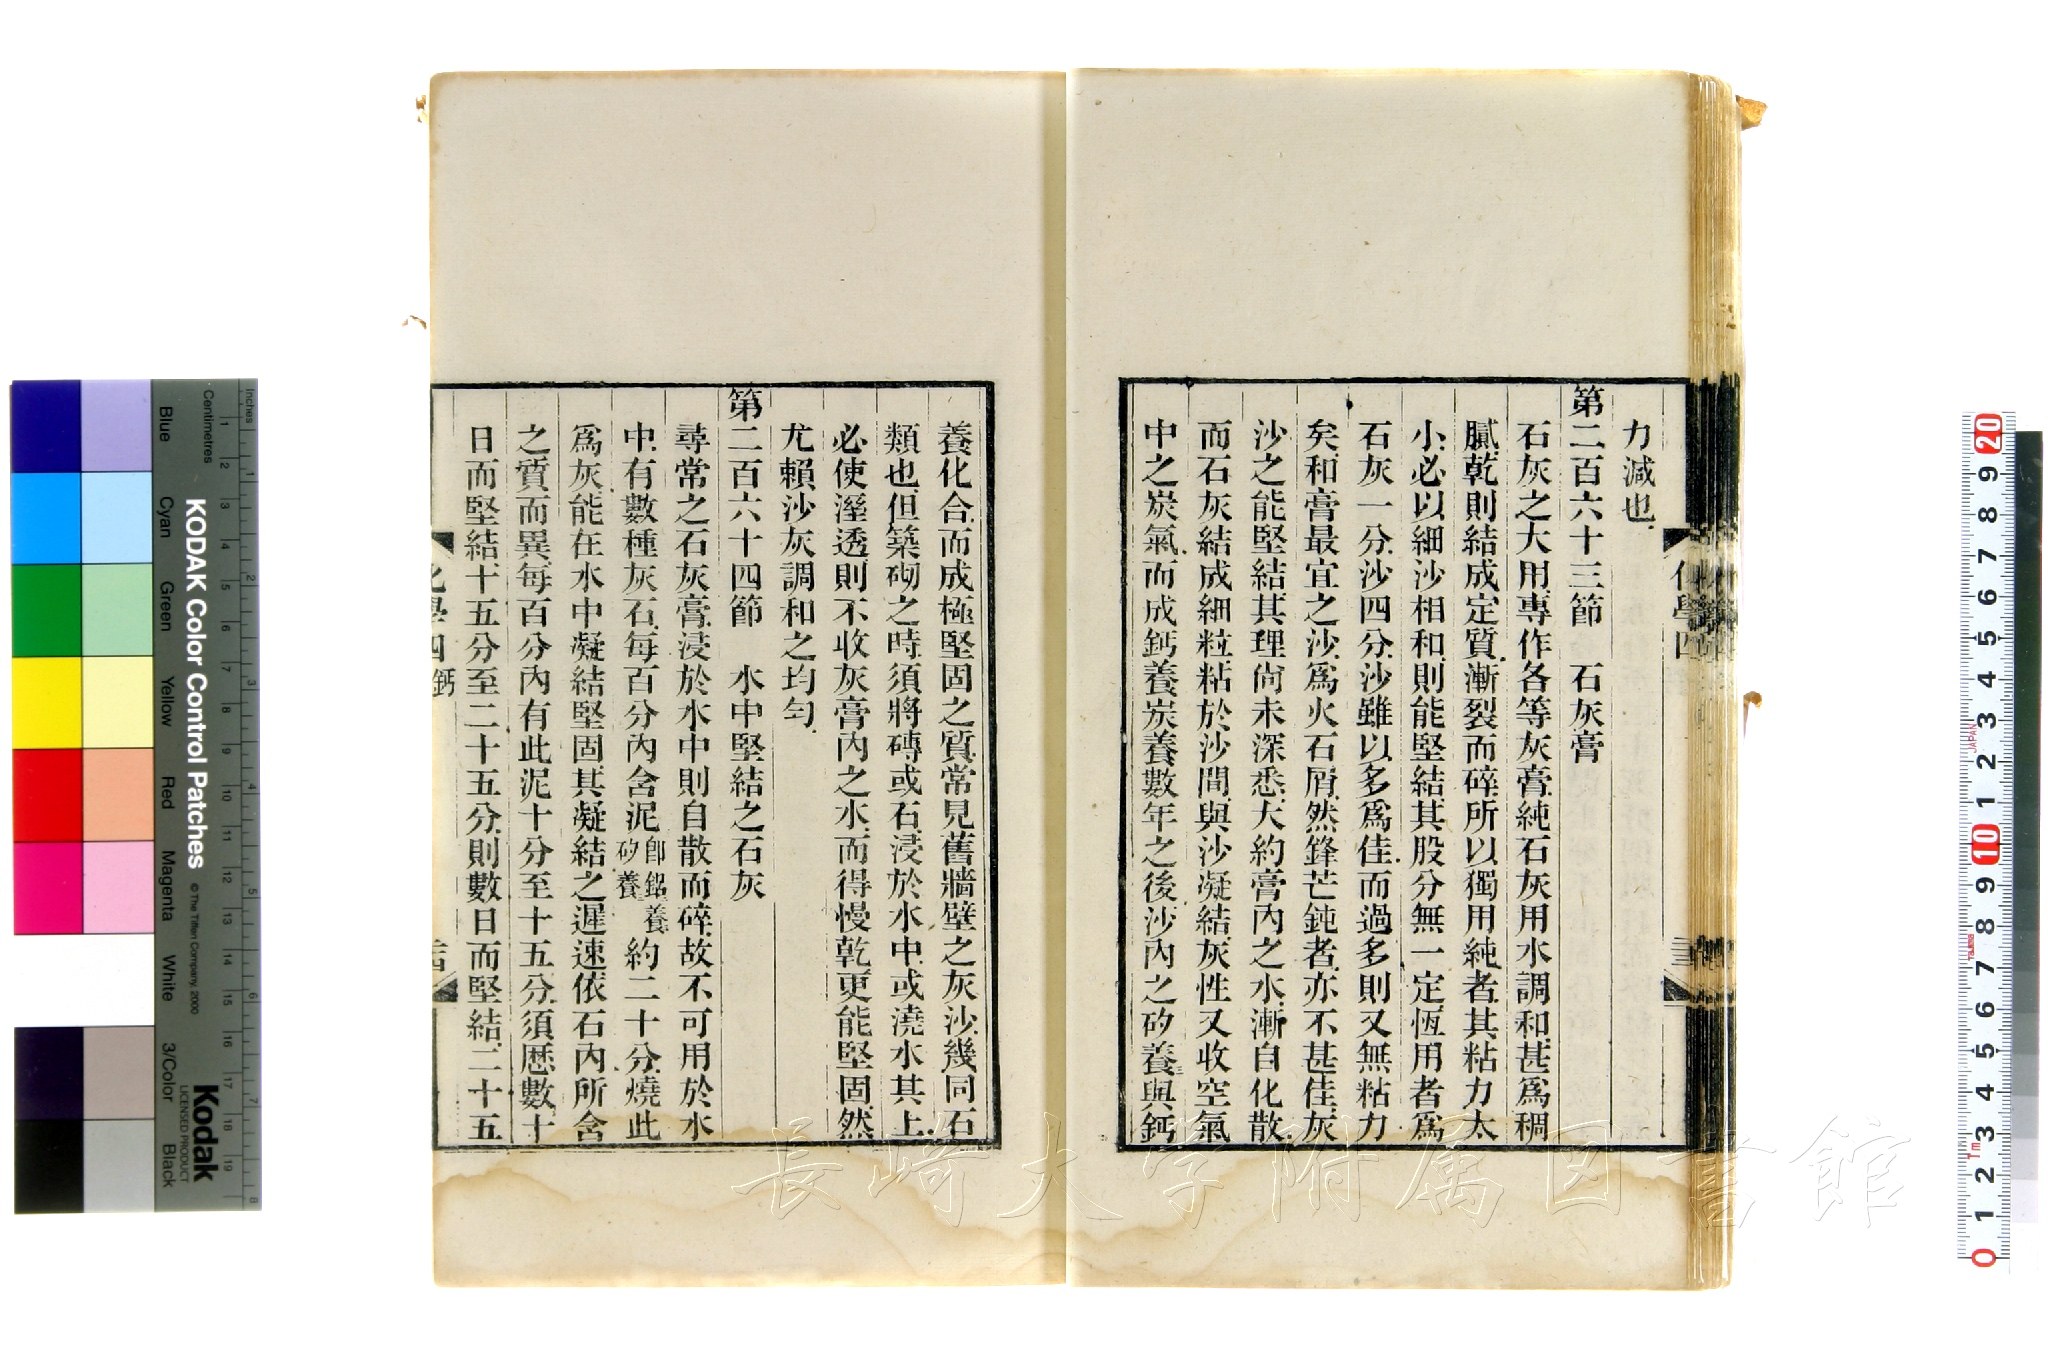 力減也
第二百六十三節　石灰膏
石灰之大用專作各等灰膏純石灰用水調和甚爲稠
膩乾則結成定質漸裂而碎所以獨用純者其粘力太
小必以細沙相和則能堅結其股分無一定恆用者爲
石灰一分沙四分沙雖以多爲佳而過多則又無粘力
矣和膏最宜之沙爲火石屑然鋒芒鈍者亦不甚佳灰
沙之能堅結其理尙未深悉大約膏內之水漸自化散
而石灰結成細粒粘於沙間與沙凝結灰性又收空氣
中之炭氣而成鈣養炭養數年之後沙內之矽養與鈣
養化合而成極堅固之質常見舊牆壁之灰沙幾同石
類也但築砌之時須將磚或石浸於水中或澆水其上
必使溼透則不收灰膏內之水而得慢乾更能堅固然
尤賴沙灰調和之均勻
第二百六十四節　水中堅結之石灰
尋常之石灰膏浸於水中則自散而碎故不可用於水
中有數種灰石每百分內含泥卽鋁養矽養約二十分燒此
爲灰能在水中凝結堅固其凝結之遲速依石內所含
之質而異每百分內有此泥十分至十五分須歷數十
日而堅結十五分至二十五分則數日而堅結二十五
化學四 鈣
長崎大学附属図書館
KODAK Color Control Patches
© The Tiffen Company, 2000
Kodak
LICENSED PRODUCT
Inches
Centimetres
Blue
Cyan
Green
Yellow
Red
Magenta
White
3/Color
Black
20
9
8
7
6
5
4
3
2
1
10
9
8
7
6
5
4
3
2
1
0